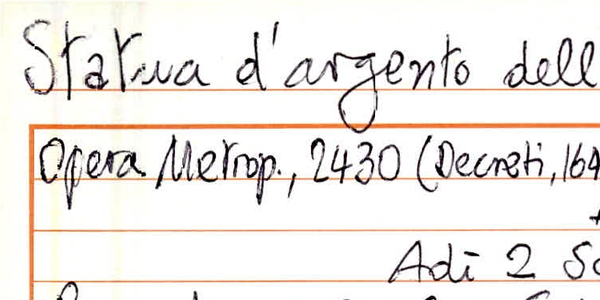 Statua d'argento dell
Opera Metrop., 2430 (Decreti, 164
Adì 2